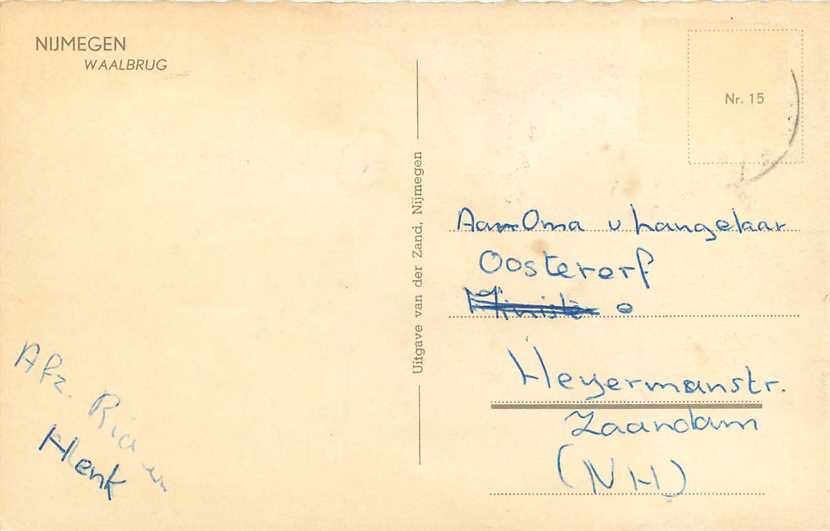 NIJMEGEN
WAALBRUG
Nr. 15
Uitgave van der Zand, Nijmegen
Aan Oma v hangelaar
Oostererf
Heyermanstr.
Zaandam
(NH)
Afz. Ria en
Henk